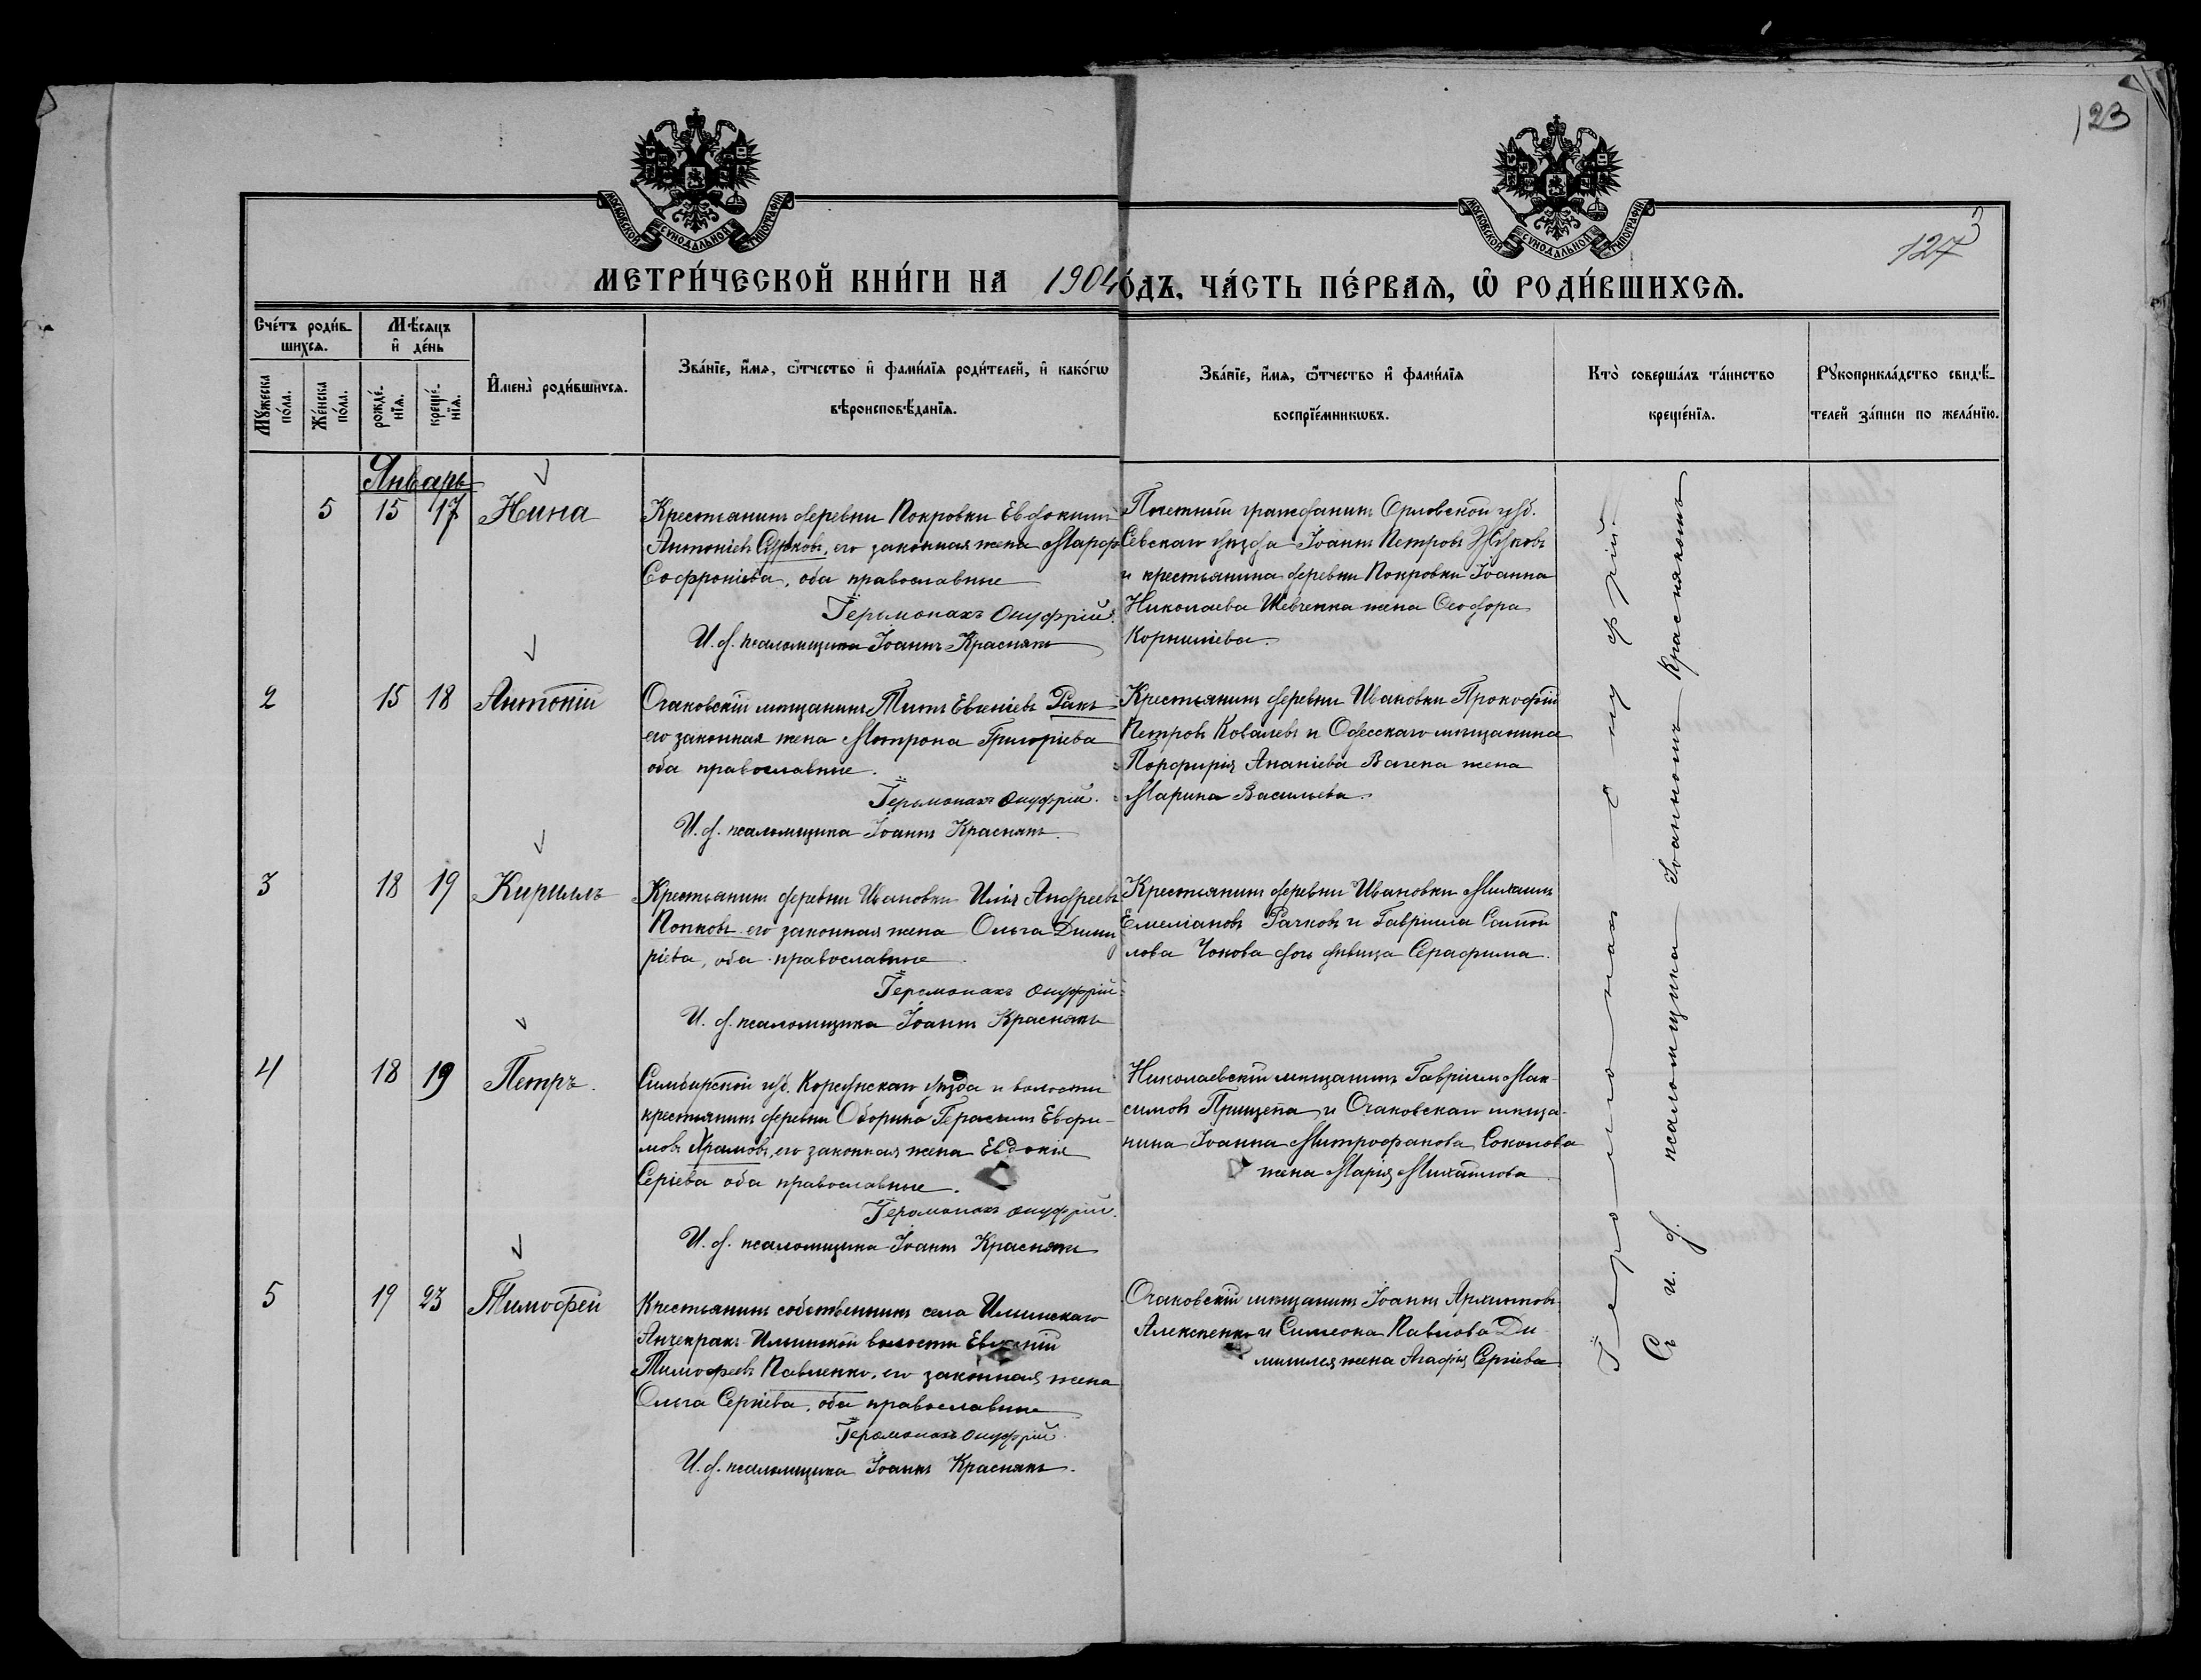 123
3
127
МОСКОВСКОЙ СѴНОДАЛЬНОЙ ТИПОГРАФІИ
МОСКОВСКОЙ СѴНОДАЛЬНОЙ ТИПОГРАФІИ
МЕТРИ́ЧЕСКОЙ КНИ́ГИ НА 1904 ѻ́дъ, ЧА́СТЬ ПЕ́РВАѦ, Ѽ РОДИ́ВШИХСѦ.
Сче́тъ роди́в-
шихсѧ.
Мꙋ́жеска
по́ла.
Же́нска
по́ла.
Мѣ́сѧцъ
и҆ де́нь
рожде́-
нїѧ.
креще́-
нїѧ.
И҆мена̀ роди́вшихсѧ.
Зва́нїе, и҆́мѧ, ѻ҆́тчество и҆ фами́лїѧ роди́телей, и҆ како́гѡ
вѣроисповѣ́данїѧ.
Зва́нїе, и҆́мѧ, ѻ҆́тчество и҆ фами́лїѧ
воспрїе́мникѡвъ.
Кто̀ соверша́лъ та́инство
креще́нїѧ.
Рꙋкоприкла́дство свидѣ́-
телей за́писи по жела́нїю.
Январь
5 15 17 Нина
Крестьянинъ деревни Покровки Евдокимъ
Антоніевъ Сурковъ, его законная жена Марѳ
Софроніева, оба православные
Іеромонахъ Онуфрій.
И. д. псаломщика Іоаннъ Краснякъ
Почетный гражданинъ Орловской губ.
Севскаго уѣзда Іоаннъ Петровъ Жуковъ
и крестьянина деревни Покровки Іоанна
Николаева Шевченка жена Ѳеодора
Корниліева.
2 15 18 Антоній
Очаковскій мѣщанинъ Титъ Евгеніевъ Ракъ
его законная жена Матрона Григоріева
оба православные.
Іеромонахъ Онуфрій.
И. д. псаломщика Іоаннъ Краснякъ.
Крестьянинъ деревни Ивановки Прокофій
Петровъ Ковалевъ и Одесскаго мѣщанина
Порфирія Ананіева жена
Марина Васильева.
3 18 19 Кириллъ
Крестьянинъ деревни Ивановки Илія Андреевъ
Попковъ его законная жена Ольга Димит
ріева, оба православные.
Іеромонахъ Онуфрій
И. д. псаломщика Іоаннъ Краснякъ
Крестьянинъ деревни Ивановки Михаилъ
Емеліановъ Рачковъ и Гавріила Самой
лова дочь дѣвица Серафима.
4 18 19 Петръ.
Симбирской губ. Корсунскаго уѣзда и волости
крестьянинъ деревни Оборино Герасимъ Евфи-
мовъ Храмовъ, его законная жена Евдокія
Сергіева оба православные.
Іеромонахъ Онуфрій.
И. д. псаломщика Іоаннъ Краснякъ
Николаевскій мѣщанинъ Гавріилъ Мак-
симовъ Прищепа и Очаковскаго мѣща-
нина Іоанна Митрофанова Соколова
жена Марія Михайлова
5 19 23 Тимофей
Крестьянинъ собственникъ села Ильинскаго
Анчекракъ Ильинской волости Евгеній
Тимофеевъ Павленко, его законная жена
Ольга Сергіева, оба православные
Іеромонахъ Онуфрій.
И. д. псаломщика Іоаннъ Краснякъ.
Очаковскій мѣщанинъ Іоаннъ Архиповъ
Алексеенко и Симеона Павлова
жена Агафія Сергіева
Іеромонахъ Онуфрій.
Съ и. д. псаломщика Іоанномъ Краснякомъ